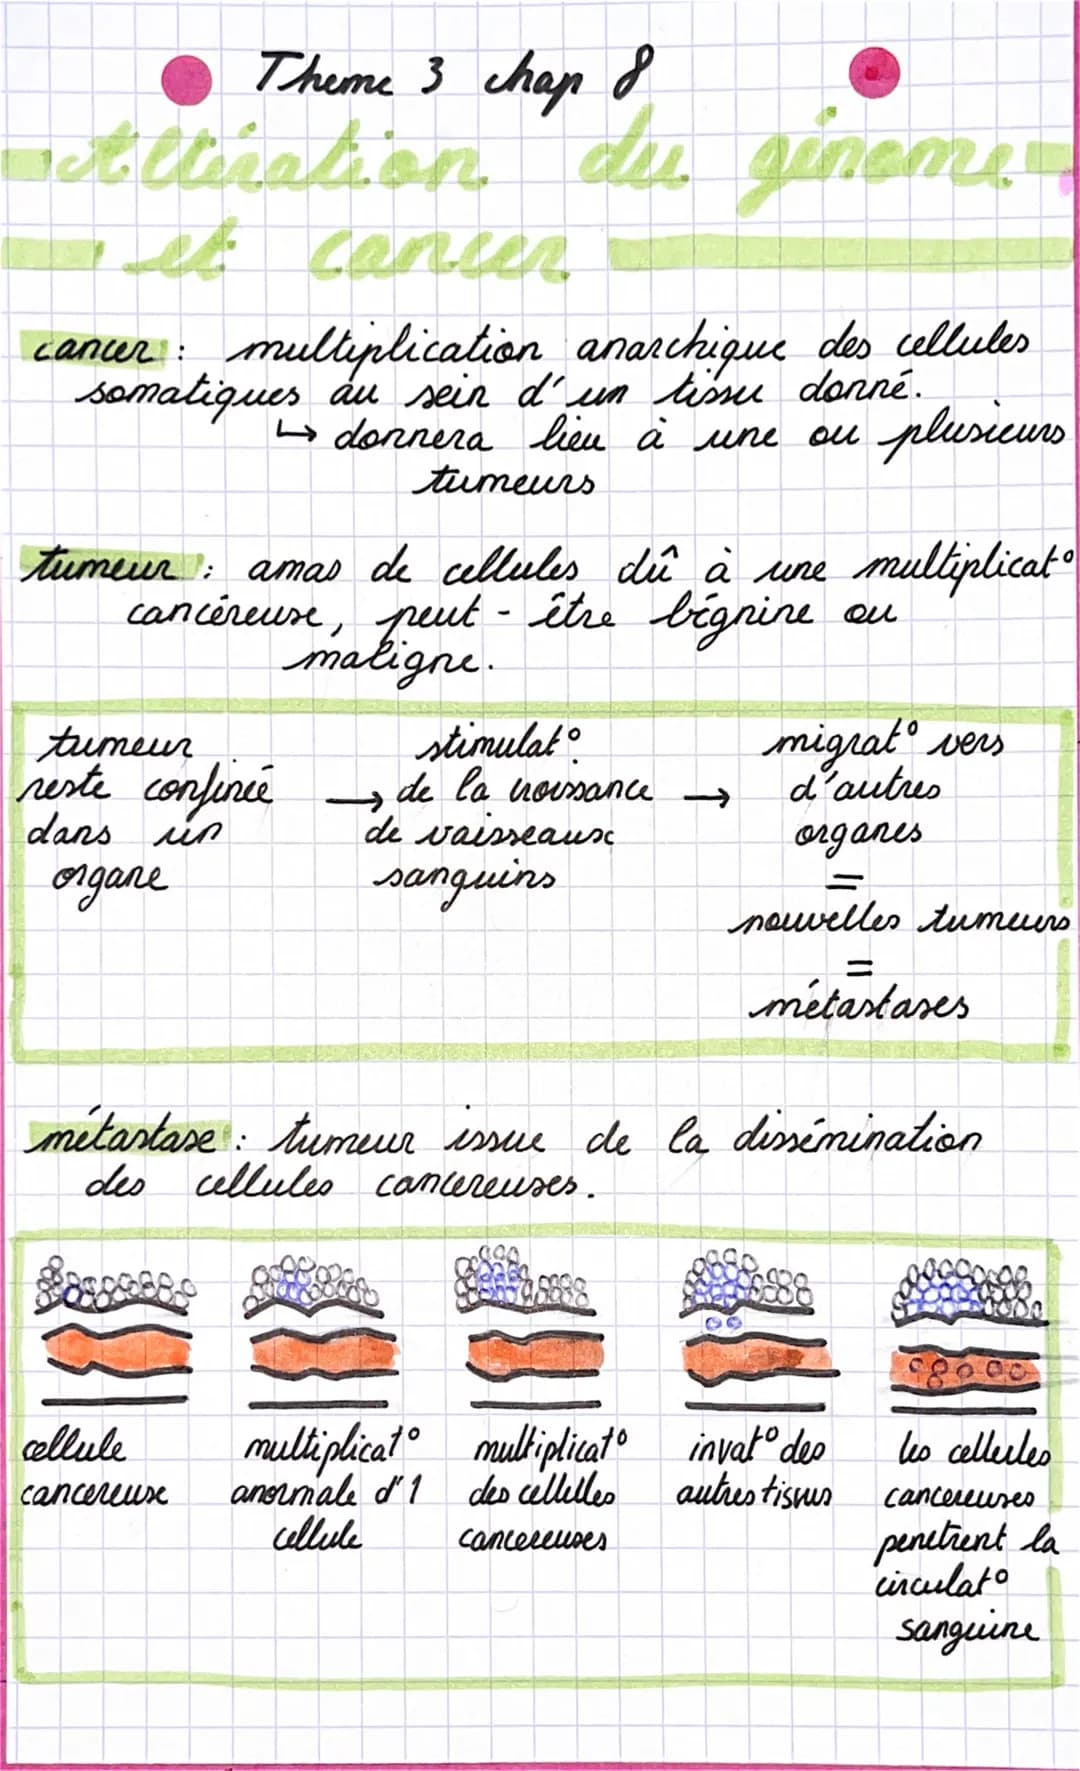 Theme 3 chap 8
Altération du génome
et cancer
cancer : multiplication anarchique des cellules
somatiques au sein d'un tissu donné.
↳ donnera lieu à une ou plusieurs
tumeurs
tumeur : amas de cellules dû à une multiplicat°
cancéreuse, peut-être bégnine ou
maligne.
tumeur
reste confinée
dans un
organe
→
stimulat°
de la croissance
de vaisseaux
sanguins
→
migrat° vers
d'autres
organes
=
nouvelles tumeurs
=
métastases
métastase : tumeur issue de la dissémination
des cellules cancereuses.
cellule
cancereuse
multiplicat°
anormale d'1
cellule
multiplicat°
des cellelles
cancereuses
invat° des
autres tissus
les cellules
cancereuses
penetrent la
circulat°
sanguine